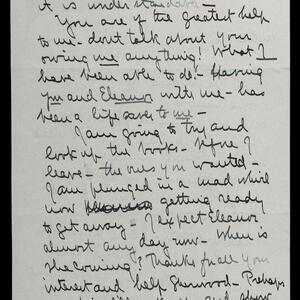 it is understandable —
You are of the greatest help
to me — dont talk about your
owing me anything! What I
have been able to do — Having
you and Eleanor with me — has
been a life saver to me —
I am going to try and
look up the books — before I
leave — the ones you wanted —
I am plunged in a mad whirl
now getting ready
to get away — I expect Eleanor
almost any day now — When is
she coming? Thanks for all your
interest and help Sherwood — Perhaps